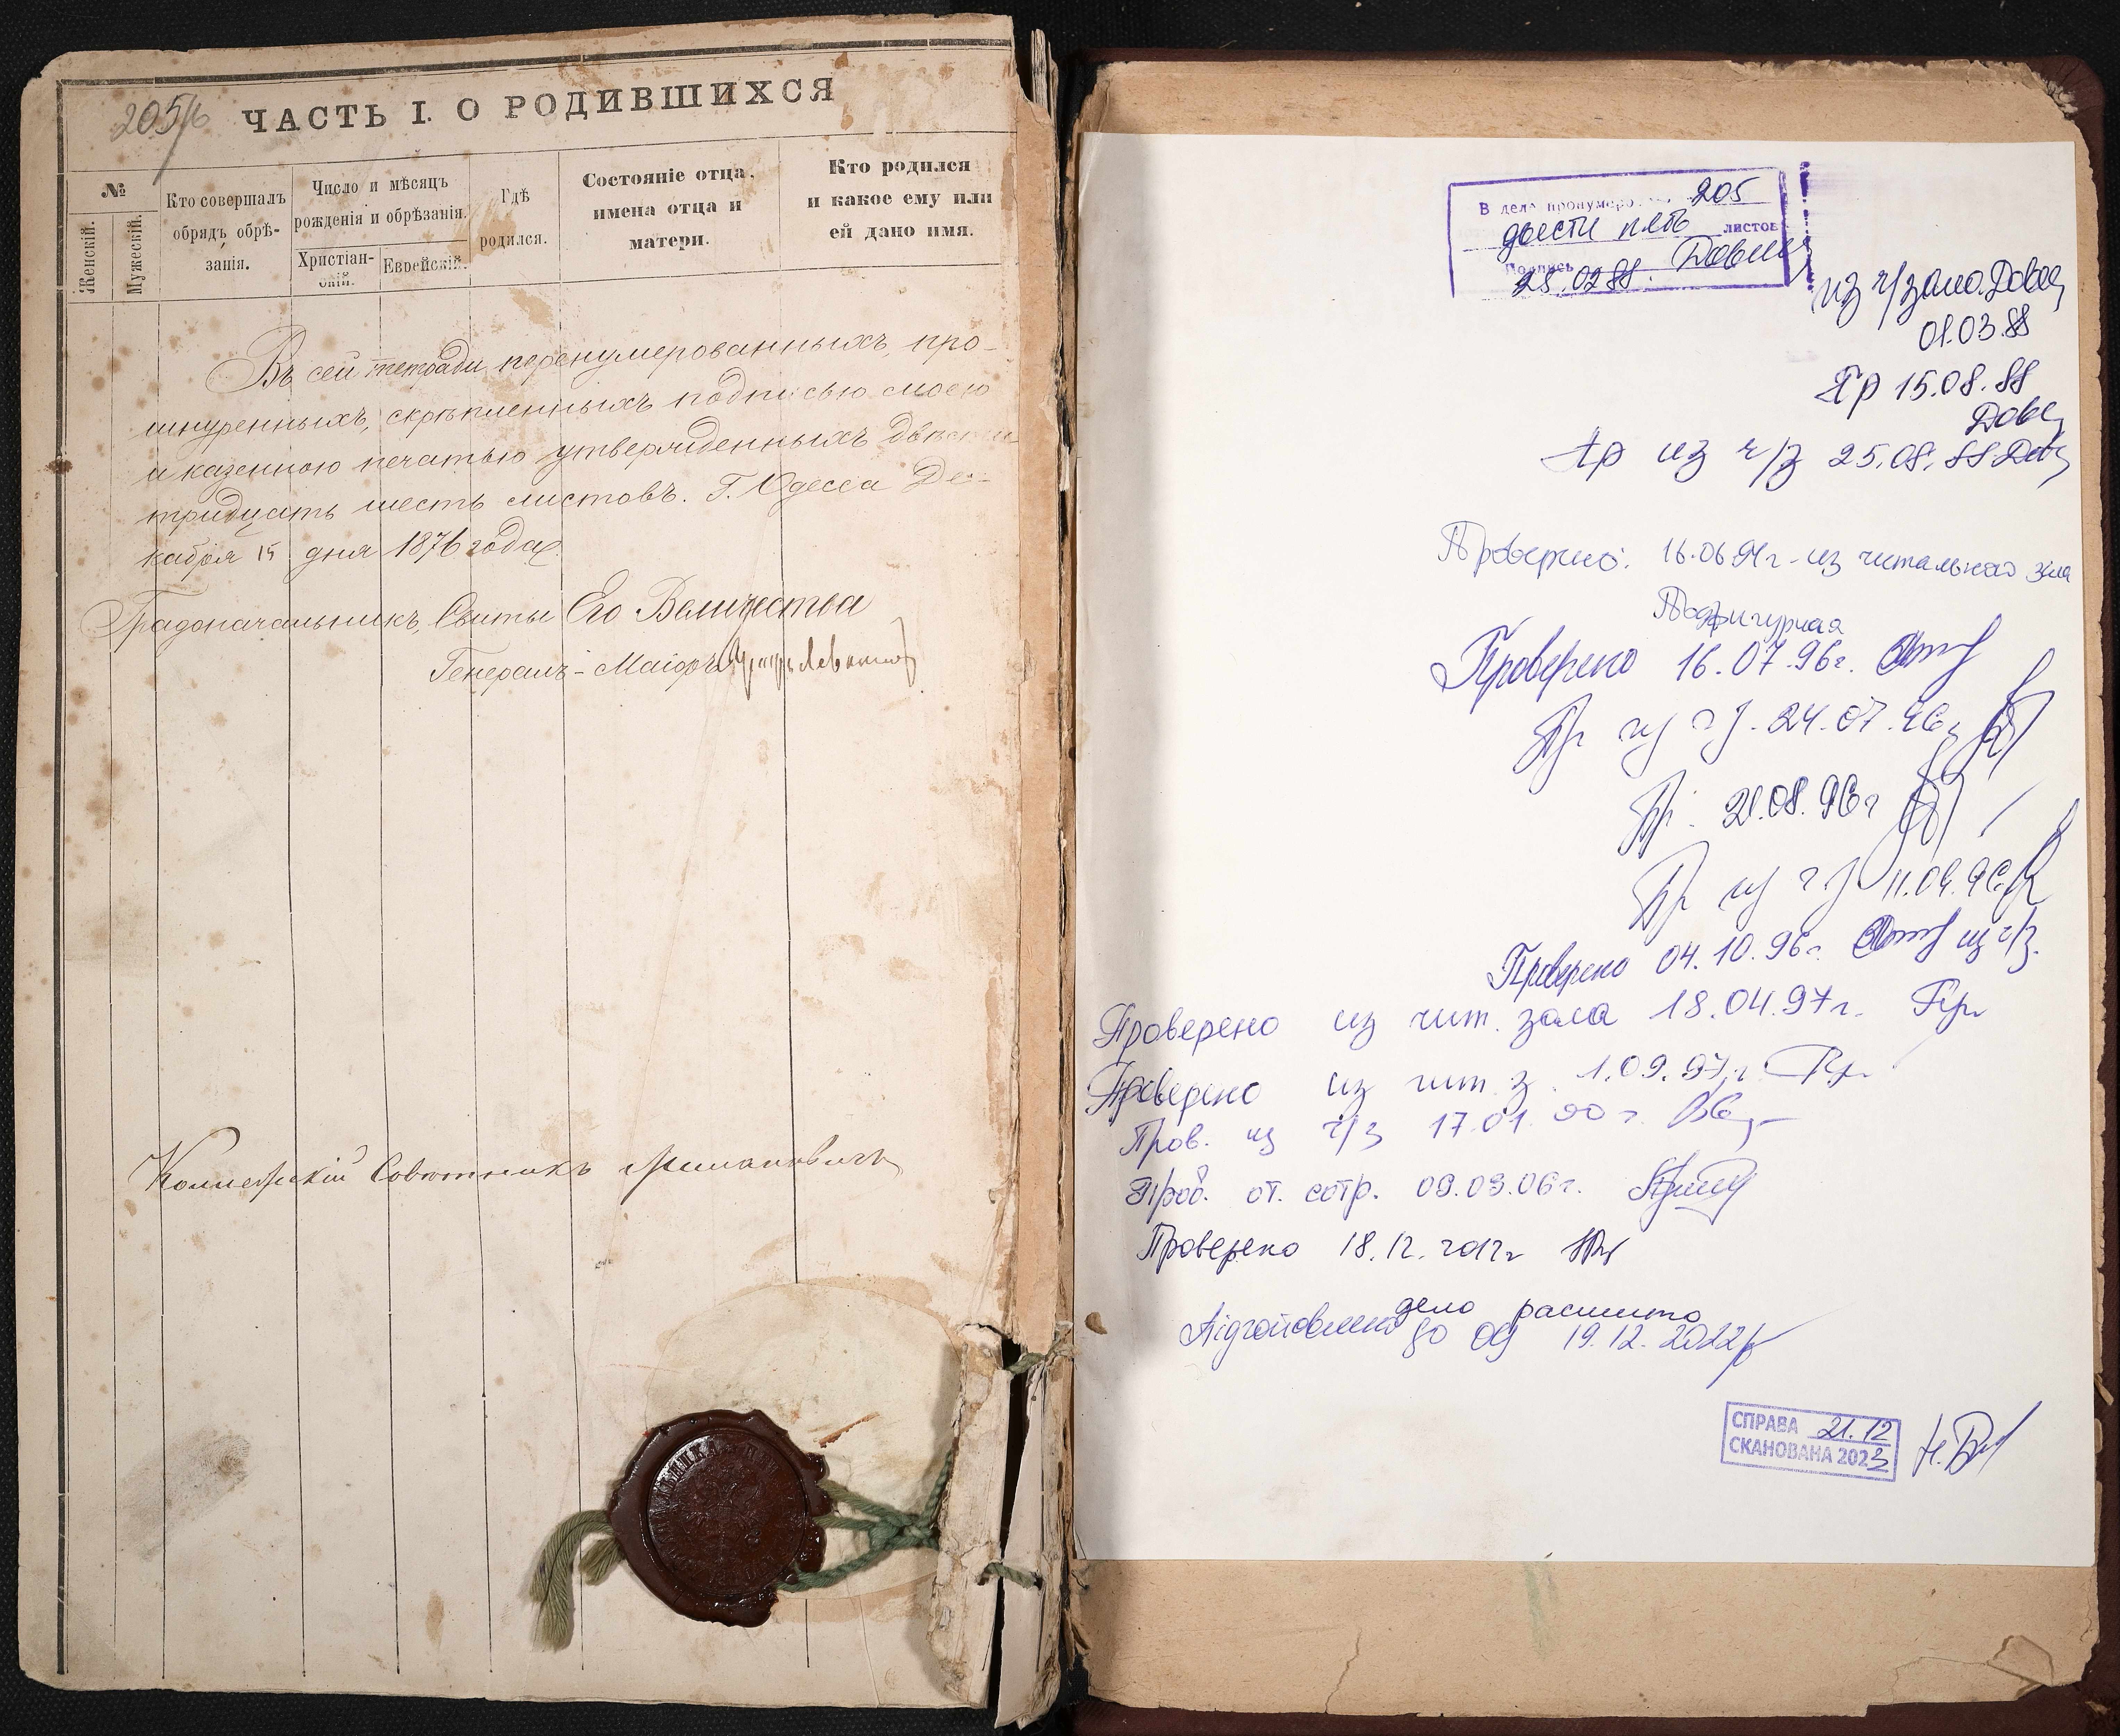 205/6
ЧАСТЬ I. О РОДИВШИХСЯ
№
Женскій.
Мужескій.
Кто совершалъ
обрядъ обрѣ-
занія.
Число и мѣсяцъ
рожденія и обрѣзанія.
Христіан-
скій.
Еврейскій.
Гдѣ
родился.
Состояніе отца,
имена отца и
матери.
Кто родился
и какое ему или
ей дано имя.
Въ сей тетради перенумерованныхъ, про-
шнуренныхъ, скрѣпленныхъ подписью моею
и казенною печатью утвержденныхъ двѣсти
тридцать шесть листовъ. Г. Одесса Де-
кабря 15 дня 1876 года
Градоначальникъ, Свиты Его Величества
Генералъ-Маіоръ
Коммерскій Совѣтникъ
В деле пронумеро 205
двести пять листов
Подпись
25.02.88.
из ч/зала
01.03.88
Пр 15.08.88
Пр из ч/з 25.08.88
Проверено: 16.06.94г - из читального зала
Подфигурная
Проверено 16.07.96г.
Пр из ч/з. 24.07.96г
Пр. 21.08.96г
Пр из ч/з 11.09.96
Проверено 04.10.96г. из ч/з.
Проверено из чит. зала 18.04.97г.
Проверено из чит. з. 1.09.97г
Пров. из ч/з 17.01.00г.
Пров. от. сотр. 09.03.06г.
Проверено 18.12.2012г
дело расшито
Підготовлено до ОЦ 19.12.2022р
СПРАВА 21.12
СКАНОВАНА 2023